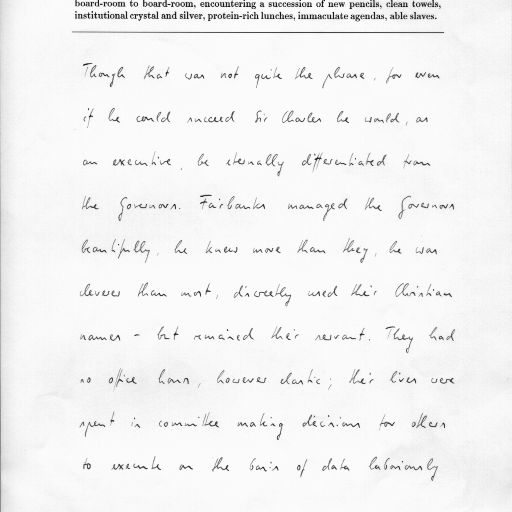 board-room to board-room, encountering a succession of new pencils, clean towels,
institutional crystal and silver, protein-rich lunches, immaculate agendas, able slaves.
Though that was not quite the phrase, for even
if he could succeed Sir Charles he would, as
an executive, be eternally differentiated from
the Governors. Fairbanks managed the Governors
beautifully, he knew more than they, he was
cleverer than most, discreetly used their Christian
names - but remained their servant. They had
no office hours, however elastic; their lives were
spent in committee making decisions for others
to execute on the basis of data laboriously